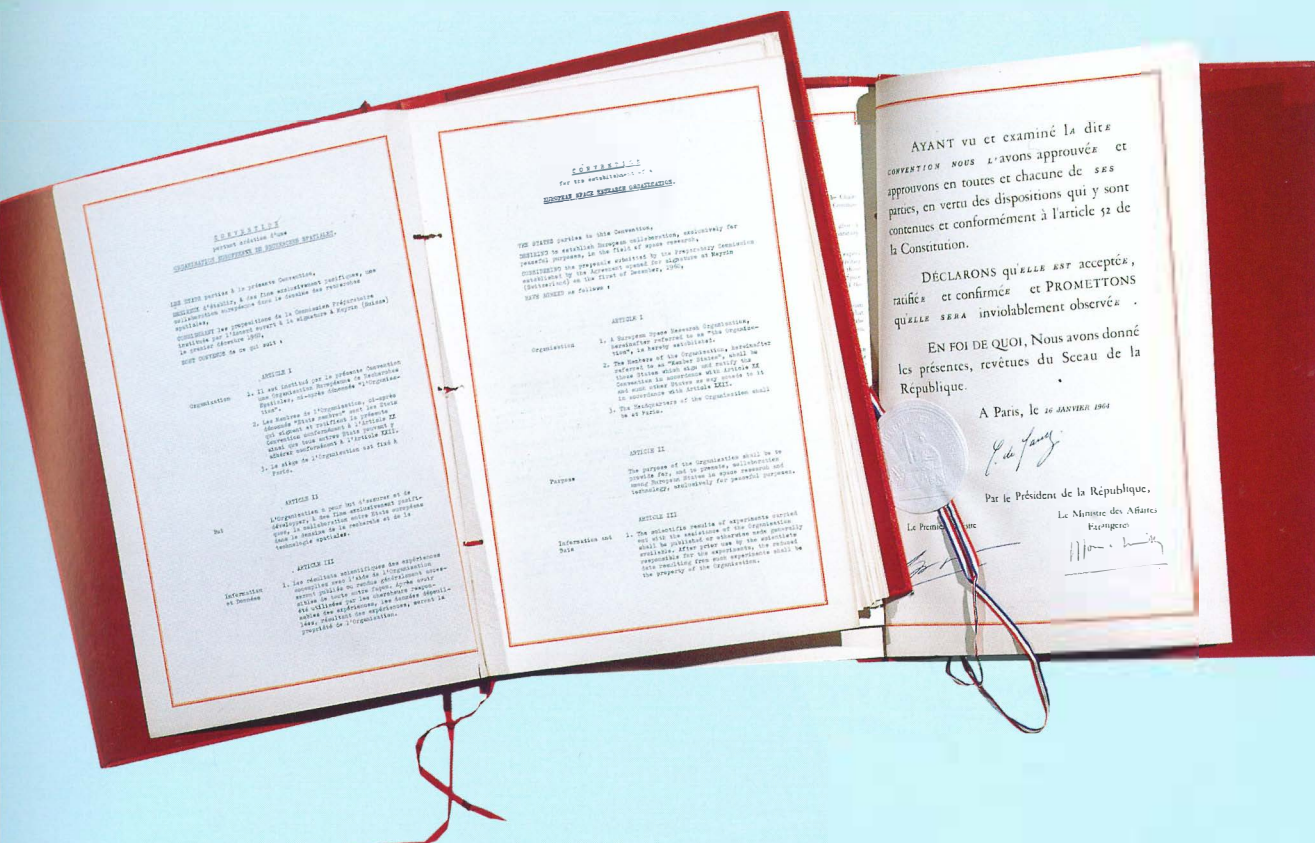 CONVENTION
portant création d'une
ORGANISATION EUROPEENNE DE RECHERCHES SPATIALES.
LES ETATS parties à la présente Convention,
DESIREUX d'établir, à des fins exclusivement pacifiques, une
collaboration européenne dans le domaine des recherches
spatiales,
CONSIDERANT les propositions de la Commission Préparatoire
instituée par l'Accord ouvert à la signature à Meyrin (Suisse)
le premier décembre 1960,
SONT CONVENUS de ce qui suit :
ARTICLE I
Organisation
1. Il est institué par la présente Convention
une Organisation Européenne de Recherches
Spatiales, ci-après dénommée "l'Organisa-
tion".
2. Les Membres de l'Organisation, ci-après
dénommés "Etats membres" sont les Etats
qui signent et ratifient la présente
Convention conformément à l'Article XX
ainsi que tous autres Etats pouvant y
adhérer conformément à l'Article XXII.
3. Le siège de l'Organisation est fixé à
Paris.
ARTICLE II
But
L'Organisation a pour but d'assurer et de
développer, à des fins exclusivement pacifi-
ques, la collaboration entre Etats européens
dans le domaine de la recherche et de la
technologie spatiales.
ARTICLE III
Information
et Données
1. Les résultats scientifiques des expériences
accomplies avec l'aide de l'Organisation
seront publiés ou rendus généralement acces-
sibles de toute autre façon. Après avoir
été utilisées par les chercheurs respon-
sables des expériences, les données dépouil-
lées, résultant des expériences, seront la
propriété de l'Organisation.
CONVENTION
for the establishment of a
EUROPEAN SPACE RESEARCH ORGANISATION.
THE STATES parties to this Convention,
DESIRING to establish European collaboration, exclusively for
peaceful purposes, in the field of space research,
CONSIDERING the proposals submitted by the Preparatory Commission
established by the Agreement opened for signature at Meyrin
(Switzerland) on the first of December, 1960,
HAVE AGREED as follows :
ARTICLE I
Organisation
1. A European Space Research Organisation,
hereinafter referred to as "the Organiza-
tion", is hereby established.
2. The Members of the Organisation, hereinafter
referred to as "Member States", shall be
those States which sign and ratify the
Convention in accordance with Article XX
and such other States as may accede to it
in accordance with Article XXII.
3. The Headquarters of the Organisation shall
be at Paris.
ARTICLE II
Purpose
The purpose of the Organisation shall be to
provide for, and to promote, collaboration
among European States in space research and
technology, exclusively for peaceful purposes.
ARTICLE III
Information and
Data
1. The scientific results of experiments carried
out with the assistance of the Organisation
shall be published or otherwise made generally
available. After prior use by the scientists
responsible for the experiments, the reduced
data resulting from such experiments shall be
the property of the Organisation.
AYANT vu et examiné la dite
CONVENTION NOUS L'avons approuvée et
approuvons en toutes et chacune de SES
parties, en vertu des dispositions qui y sont
contenues et conformément à l'article 52 de
la Constitution.
DÉCLARONS qu'ELLE EST acceptée,
ratifiée et confirmée et PROMETTONS
qu'ELLE SERA inviolablement observée.
EN FOI DE QUOI, Nous avons donné
les présentes, revêtues du Sceau de la
République.
A Paris, le 16 JANVIER 1964
Par le Président de la République,
Le Premier
Le Ministre des Affaires
Etrangères